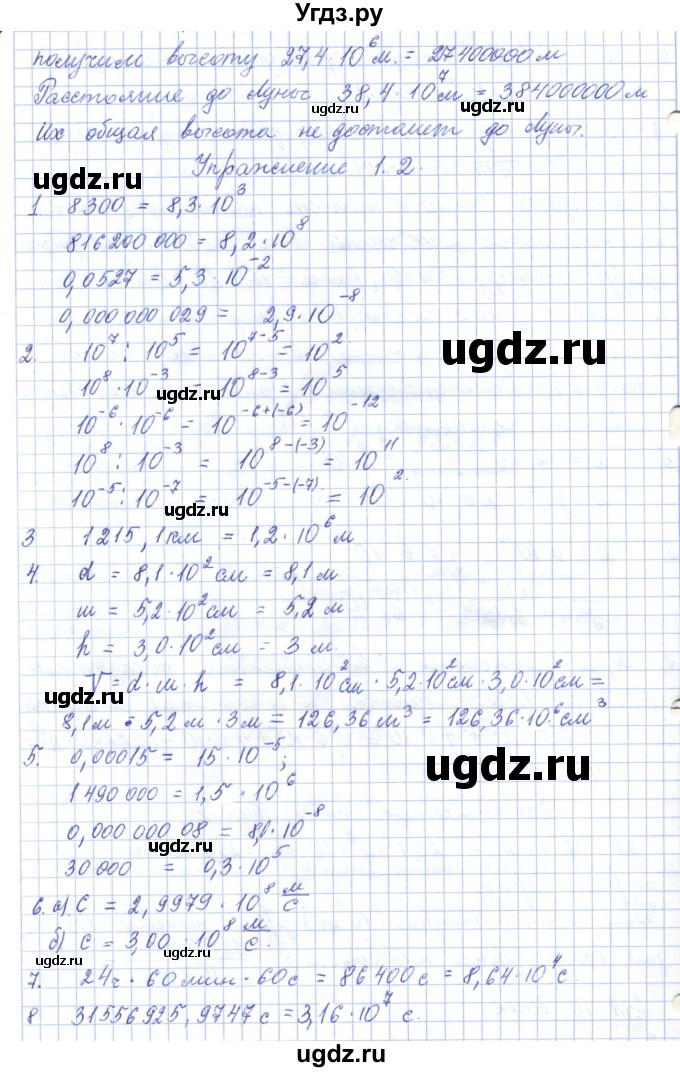 Угдз.ру
получим высоту 27,4·10⁶м. = 27400000м
Расстояние до Луны 38,4·10⁷м = 384000000м
ugdz.ru ugdz.ru
Их общая высота не достанет до Луны.
ugdz.ru Упражнение 1.2.
1. 8300 = 8,3·10³
816200 000 = 8,2·10⁸
0,0527 = 5,3·10⁻²
0,000 000 029 = 2,9·10⁻⁸
2. 10⁷ : 10⁵ = 10⁷⁻⁵ = 10²
ugdz.ru
10⁸·10⁻³ = 10⁸⁻³ = 10⁵
ugdz.ru
10⁻⁶·10⁻⁶ = 10⁻⁶⁺⁽⁻⁶⁾ = 10⁻¹²
10⁸ : 10⁻³ = 10⁸⁻⁽⁻³⁾ = 10¹¹
10⁻⁵ : 10⁻⁷ = 10⁻⁵⁻⁽⁻⁷⁾ = 10².
ugdz.ru
3 1215,1км = 1,2·10⁶м
4. d = 8,1·10²см = 8,1м
ш = 5,2·10²см = 5,2м
h = 3,0·10²см = 3м.
V = d·ш·h = 8,1·10²см·5,2·10²см·3,0·10²см =
ugdz.ru
8,1м·5,2м·3м = 126,36м³ = 126,36·10⁶см³
5. 0,00015 = 15·10⁻⁵;
ugdz.ru
1490000 = 1,5·10⁶
0,000 000 08 = 8,0·10⁻⁸
ugdz.ru
30000 = 0,3·10⁵
6. а) С = 2,9979·10⁸ м/с
б) с = 3,00·10⁸ м/с.
ugdz.ru ugdz.ru
7. 24ч·60мин·60с = 86400с = 8,64·10⁴с
8 31556925,9747с = 3,16·10⁷ с.
ugdz.ru